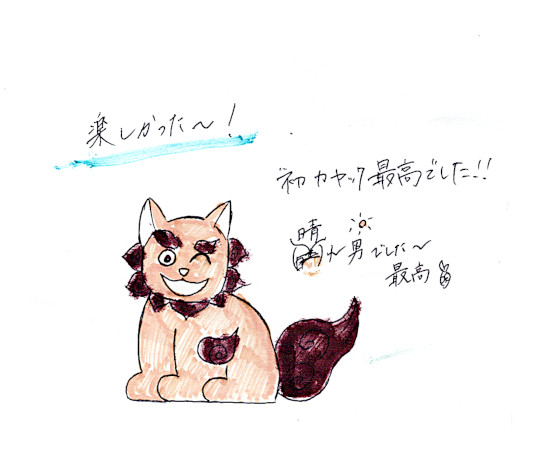 楽しかった〜!
初カヤック最高でした!!
晴れ男でした〜
最高